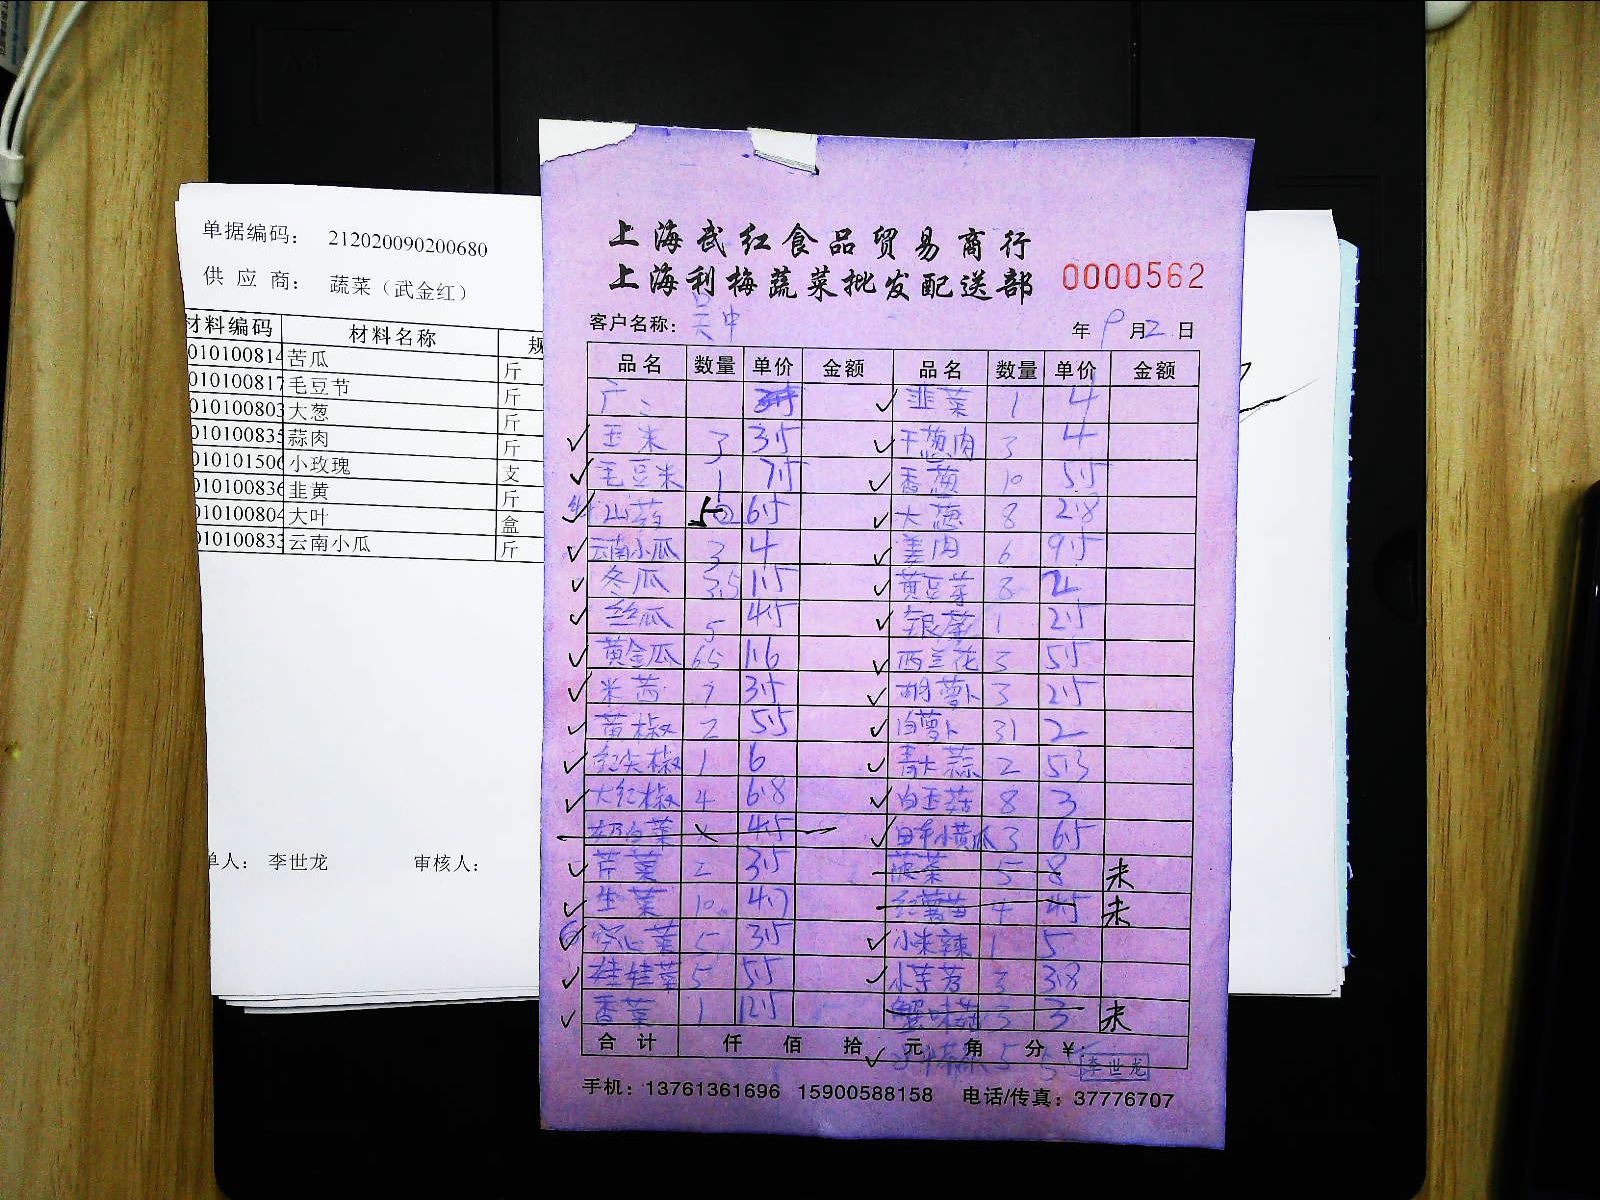 单据编码： 212020090200680
供 应 商： 蔬菜（武金红）
材料编码 材料名称
010100814 苦瓜 斤
010100817 毛豆节 斤
010100803 大葱 斤
010100835 蒜肉 斤
010101506 小玫瑰 支
010100836 韭黄 斤
010100804 大叶 盒
010100833 云南小瓜 斤
单人： 李世龙 审核人：
上海武红食品贸易商行
上海利梅蔬菜批发配送部
0000562
客户名称： 吴中 年 9 月 2 日
品名 数量 单价 金额 品名 数量 单价 金额
韭菜 1 4
玉米 3 3.5 干葱肉 3 4
毛豆米 1 7.5 香葱 10 5.5
山药 5 6.5 大葱 8 2.8
云南小瓜 3 4 姜肉 6 9.5
冬瓜 35 1.5 黄豆芽 8 2
丝瓜 5 4.5 银芽 1 2.5
黄金瓜 65 1.6 西兰花 3 5.5
米茜 7 3.5 胡萝卜 3 2.5
黄椒 2 5.5 白萝卜 31 2
红尖椒 1 6 青大蒜 2 5.3
大红椒 4 6.8 白玉菇 8 3
奶白菜 4.5 日本小黄瓜 3 6.5
芹菜 2 3.5 菠菜 5 8 未
生菜 10 4.7 红薯苗 4 4.5 未
空心菜 5 3.5 小米辣 1 5
娃娃菜 5 5.5 小芋艿 3 3.8
香菜 1 12.5 蟹味菇 3 3 未
合 计 仟 佰 拾 元 角 分 ¥
李世龙
手机：13761361696 15900588158 电话/传真：37776707